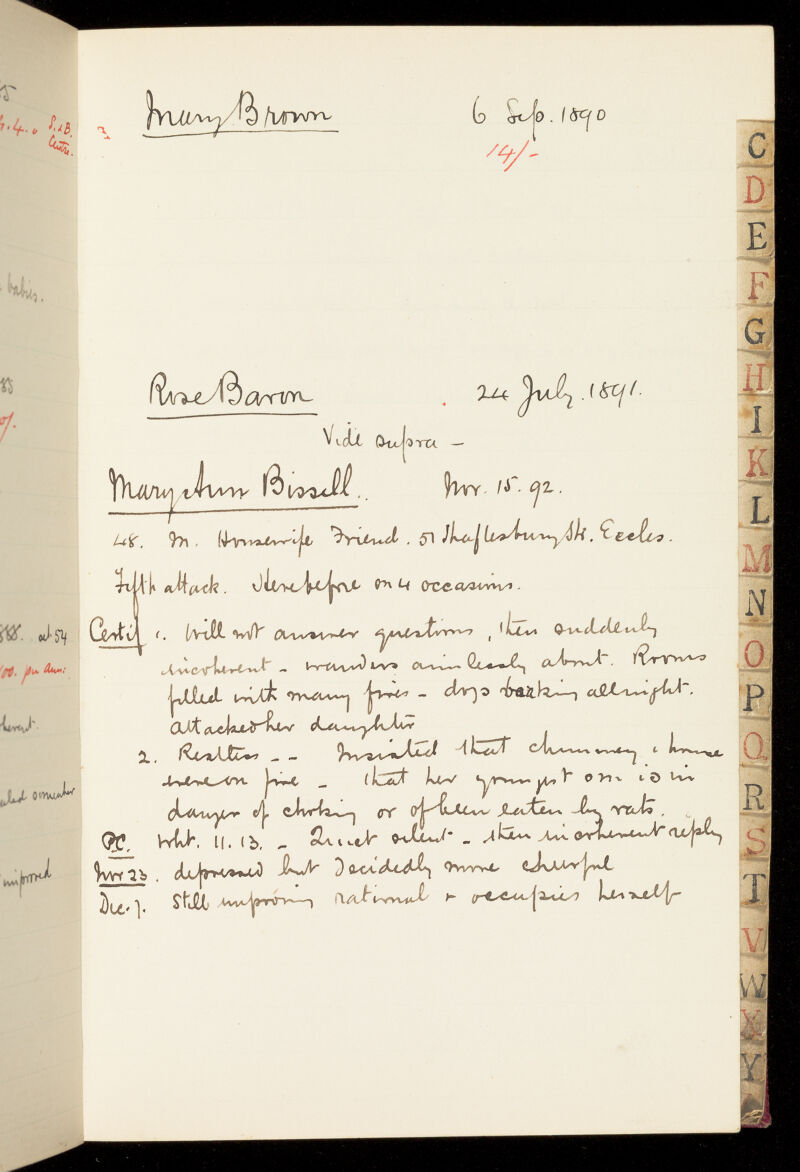 5
S. & B.
Centre.
Mary Brown 6 Sep. 1890
14/-
babies.
85
Rose Baron . 24 July. 1891.
Vide supra —
Mary Ann Bissell. Nov. 15. 92.
48. M. Housewife Friend. 51 Shaftesbury St. Eccles.
Fifth attack. Here before on 4 occasions.
Certif 1. Will not answer questions, then suddenly
incoherent - wanders aimlessly about. Rooms
filled with many fires - dogs barking all night.
Attacked her daughter
2. Restless - - Insisted that chimney & house
were on fire - that her youngest son is in
danger of choking or of been eaten by rats.
P.C. Wht. 11. 13. - Quiet silent - then incoherent reply
Nov 23. depressed but decidedly more cheerful
Dec. 7. Still improving rational & occupies herself
888. at 54
00. per ann:
herent.
somewhat
improved
C
D
E
F
G
H
I
K
L
M
N
O
P
Q
R
S
T
V
W
X
Y